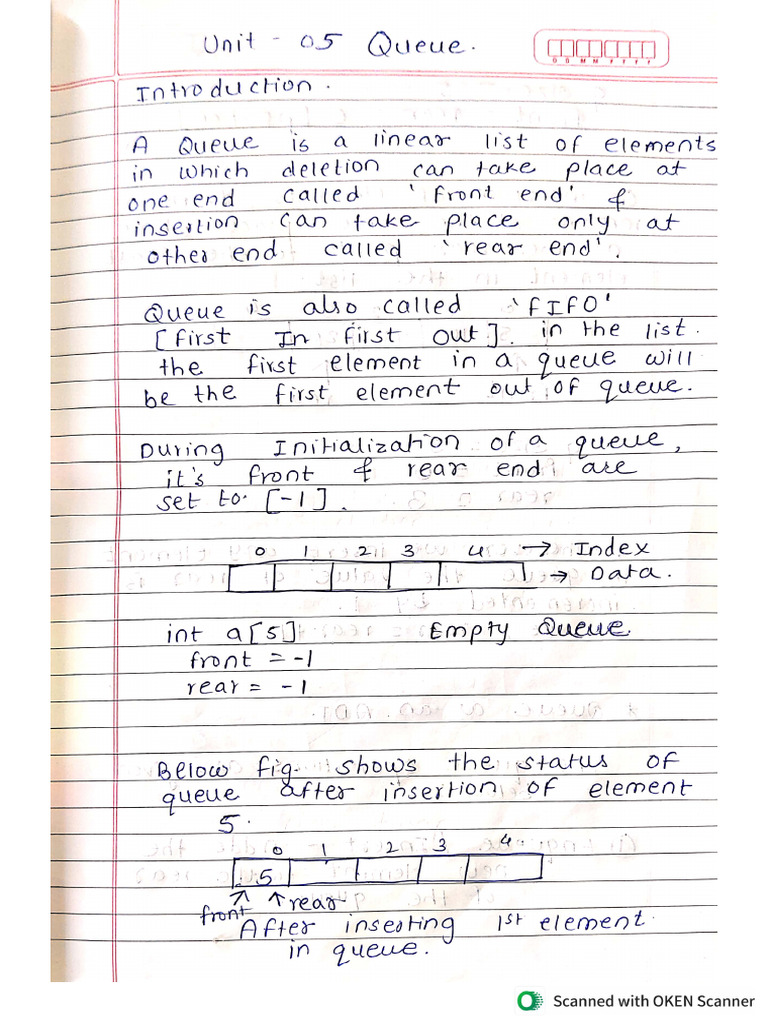 Unit - 05 Queue.
D D M M Y Y Y Y
Introduction.
A Queue is a linear list of elements
in which deletion can take place at
one end called 'front end' &
insertion can take place only at
other end called 'rear end'.
Queue is also called 'FIFO'
[first In first out]. in the list.
the first element in a queue will
be the first element out of queue.
During Initialization of a queue,
it's front & rear end are
set to [-1].
0 1 2 3 4 → Index
→ Data.
int a[5] Empty Queue
front = -1
rear = -1
Below fig. shows the status of
queue after insertion of element
5.
0 1 2 3 4
5
↑ ↑ rear
front
After inserting 1st element
in queue.
Scanned with OKEN Scanner